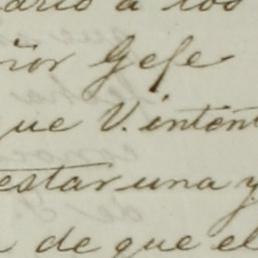 ario a los
ñor Gefe
que V. intent
estar una y
de que el